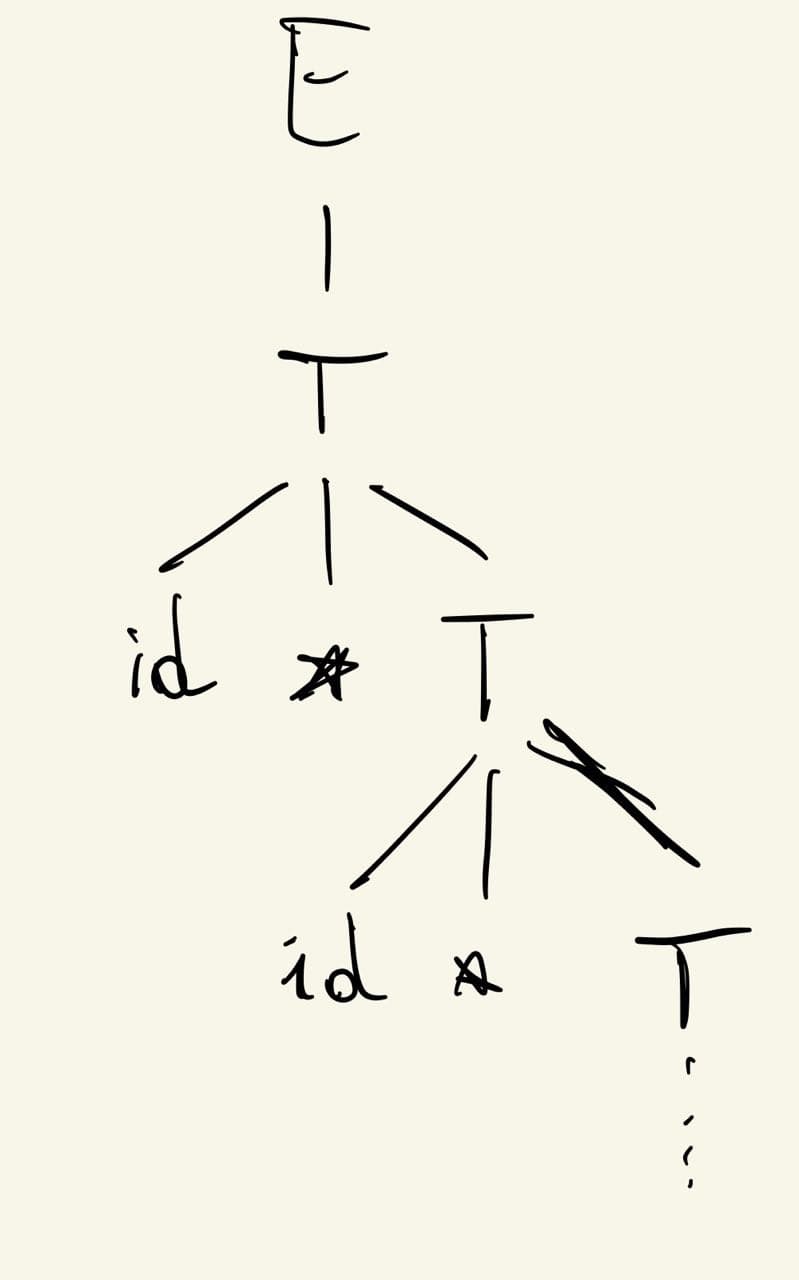 E
T
id * T
id * T